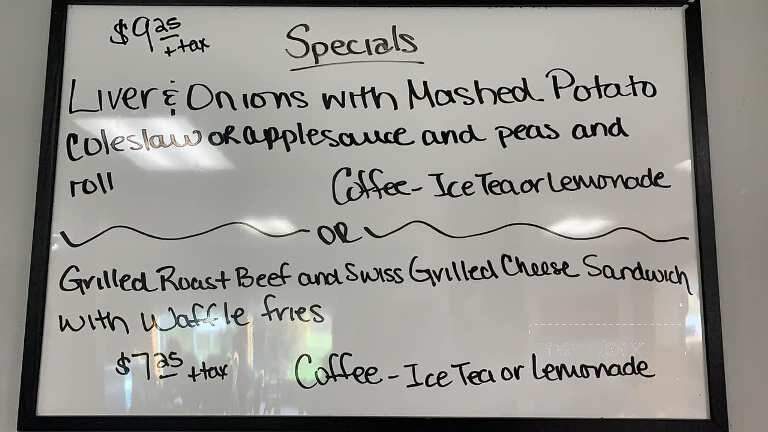 $9.25 + tax
Specials
Liver & Onions with Mashed Potato
coleslaw or applesauce and peas and
roll
Coffee - Ice Tea or Lemonade
OR
Grilled Roast Beef and Swiss Grilled Cheese Sandwich
with waffle fries
$7.25 + tax
Coffee - Ice Tea or Lemonade